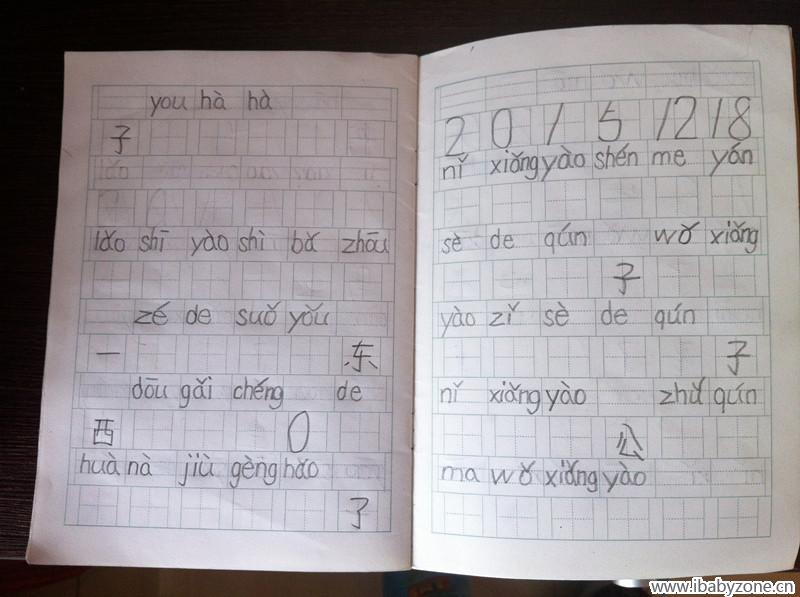 you hà hà
子
lǎo shī yào shì bǎ zhōu
zé de suǒ yǒu
一 东
dōu gǎi chéng de
西 0
huà nà jiù gèng hǎo
了
2 0 1 5 12 18
nǐ xiǎng yào shén me yán
sè de qún wǒ xiǎng
子
yào zǐ sè de qún
子
nǐ xiǎng yào zhǔ qún
公
ma wǒ xiǎng yào
www.ibabyzone.cn